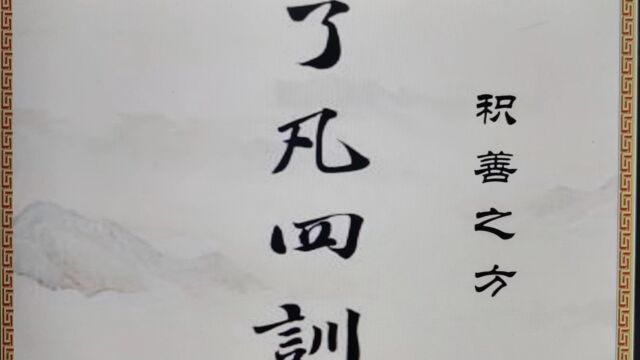 积善之方
了凡四訓